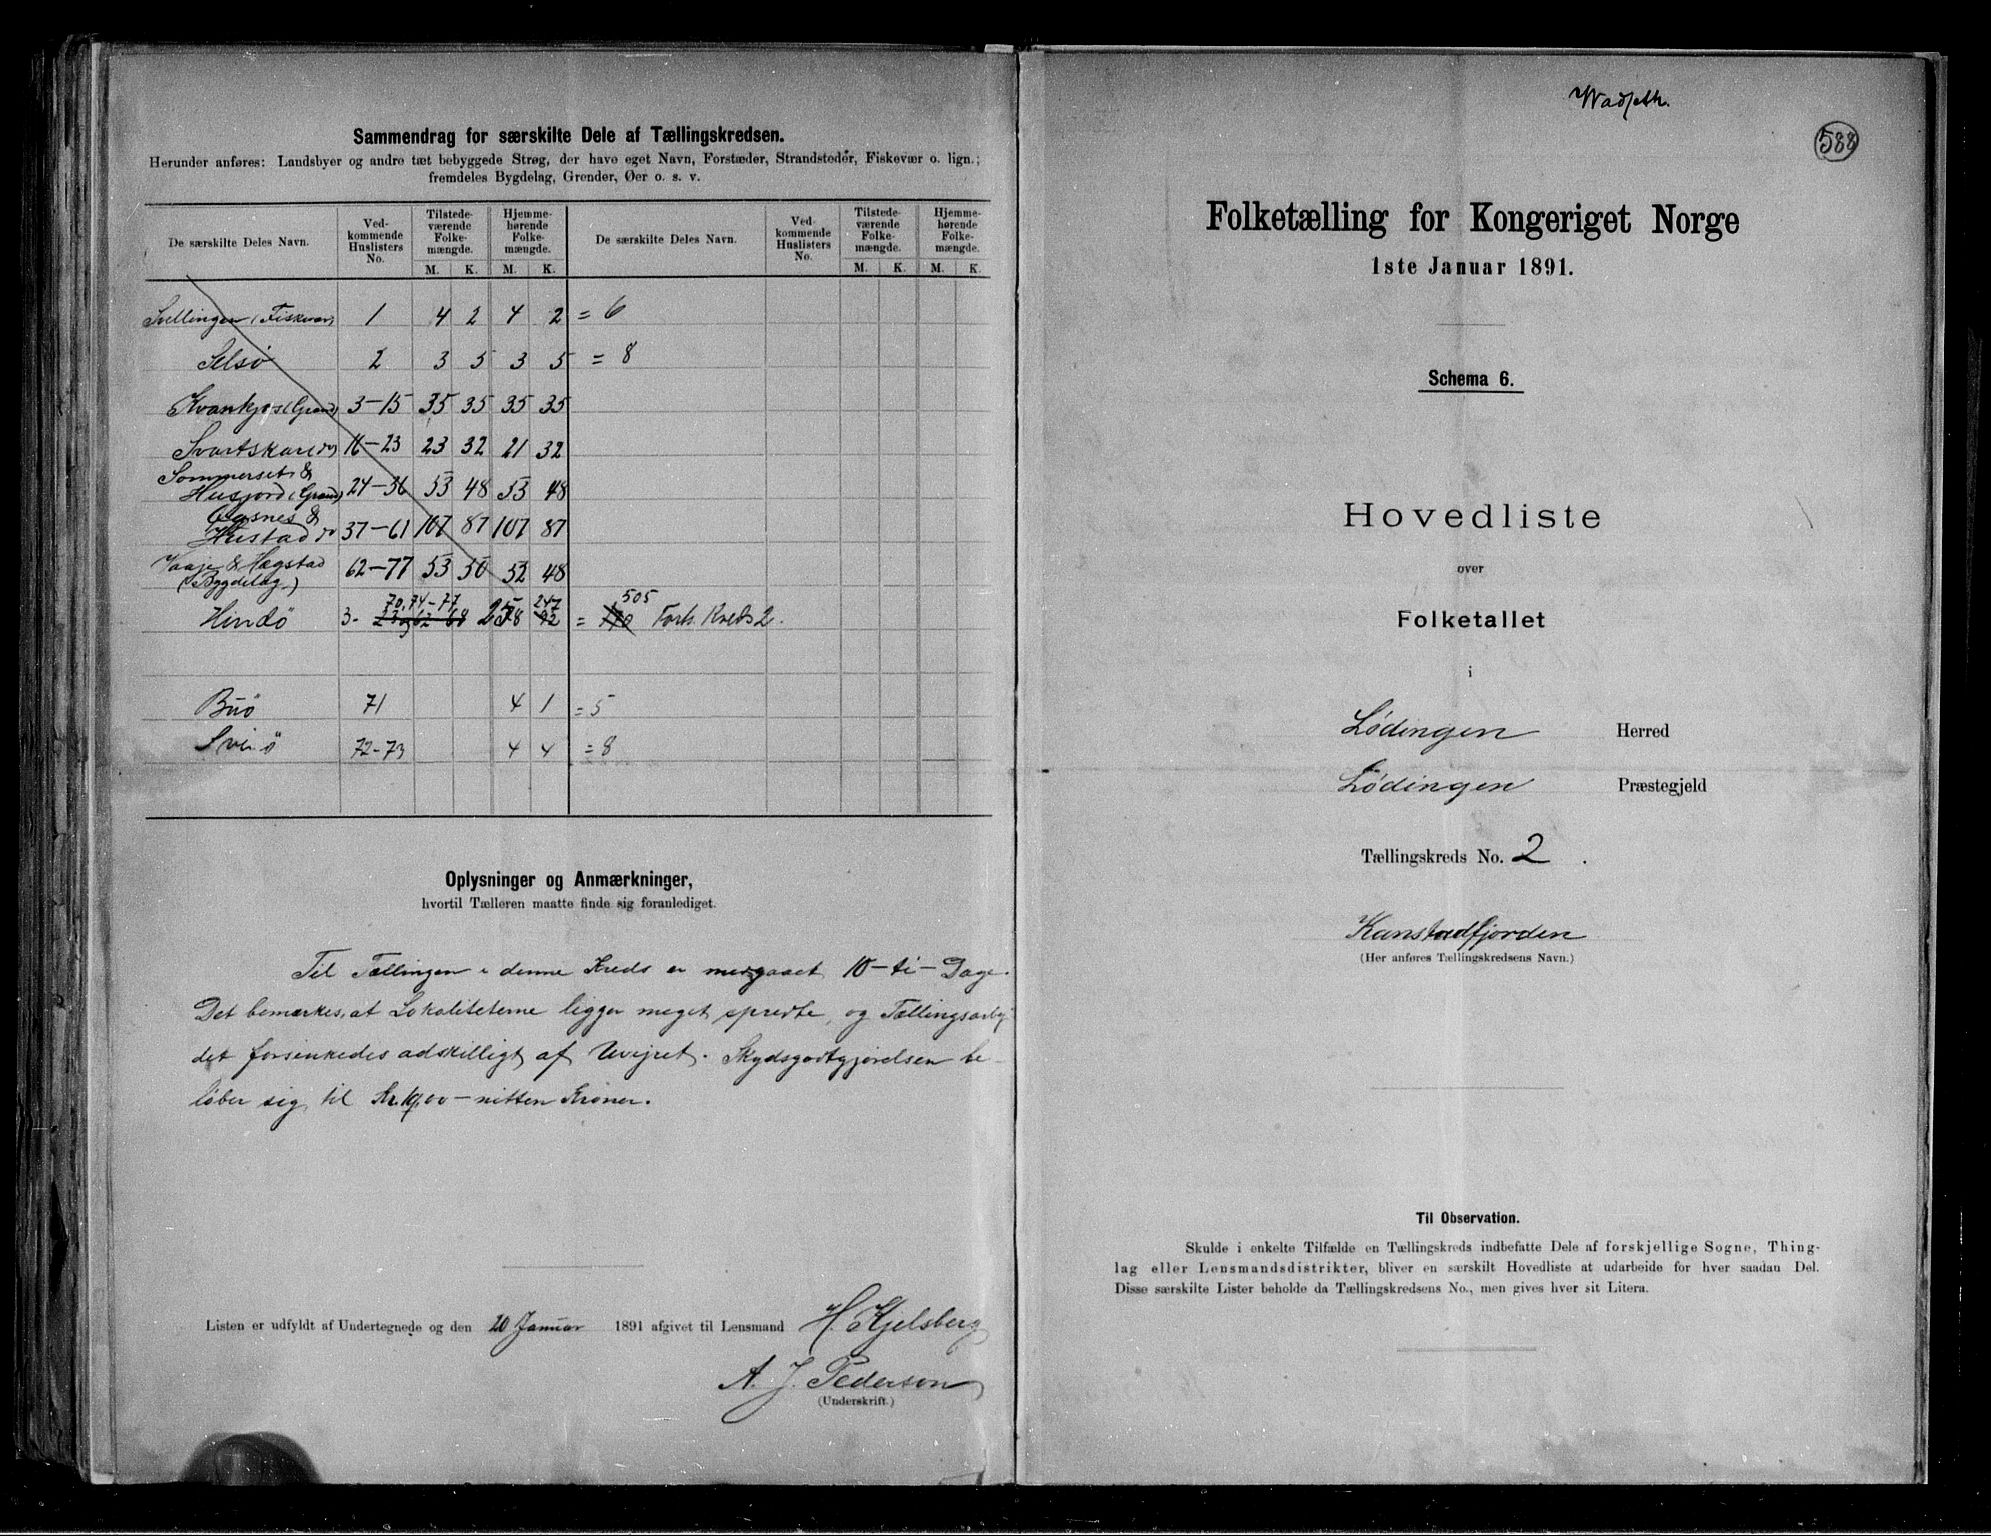 Sammendrag for særskilte Dele af Tællingskredsen.
Herunder anføres: Landsbyer og andre tæt bebyggede Strøg, der have eget Navn, Forstæder, Strandsteder, Fiskevær o. lign.;
fremdeles Bygdelag, Grender, Øer o. s. v.
De særskilte Deles Navn. Ved-kommende Huslisters No. Tilstede-værende Folke-mængde. Hjemme-hørende Folke-mængde. De særskilte Deles Navn. Ved-kommende Huslisters No. Tilstede-værende Folke-mængde. Hjemme-hørende Folke-mængde.
M. K. M. K. M. K. M. K.
(Fiskevær) 1 4 2 4 2 = 6
Selsø 2 3 5 3 5 = 8
3-15 35 35 35 35
16-23 23 32 21 32
Sommerset &
Husjord (Grend) 24-36 53 48 53 48
&
Hustad do 37-61 107 87 107 87
Vaaje & Hægstad
(Bygdelag) 62-77 53 50 52 48
70,74-77 247 505
Hindö 3- 258 = Kreds 2.
Buö 71 4 1 = 5
Svinö 72-73 4 4 = 8
Oplysninger og Anmærkninger,
hvortil Tælleren maatte finde sig foranlediget.
Til Tællingen i denne Kreds er medgaaet 10-ti-Dage.
Det bemærkes, at Lokaliteterne ligger meget spredte, og Tællingsarbej
det forsinkedes adskilligt af Uvejret. Skydsgodtgjørelsen be-
løber sig til Kr. 19,00-nitten Kroner.
Listen er udfyldt af Undertegnede og den 20 Januar 1891 afgivet til Lensmand H. Kjelsberg
A. J. Pederson
(Underskrift.)
588
Folketælling for Kongeriget Norge
1ste Januar 1891.
Schema 6.
Hovedliste
over
Folketallet
i
Lødingen Herred
Lødingen Præstegjeld
Tællingskreds No. 2.
Kanstadfjorden
(Her anføres Tællingskredsens Navn.)
Til Observation.
Skulde i enkelte Tilfælde en Tællingskreds indbefatte Dele af forskjellige Sogne, Thing-
lag eller Lensmandsdistrikter, bliver en særskilt Hovedliste at udarbeide for hver saadan Del.
Disse særskilte Lister beholde da Tællingskredsens No., men gives hver sit Litera.